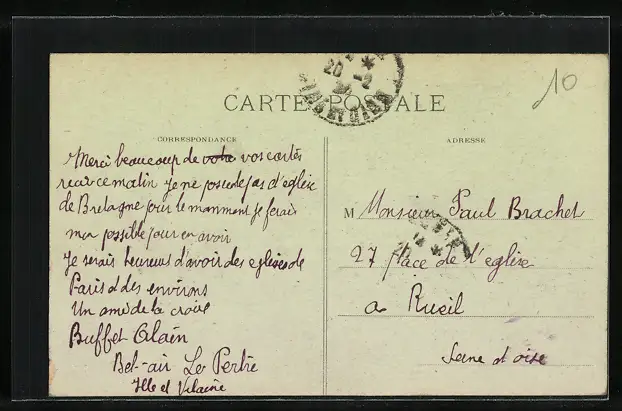 10
CARTE POSTALE
CORRESPONDANCE
ADRESSE
Merci beaucoup de votre vos cartes
recu ce matin je ne possede pas d'eglise
de Bretagne pour le momment je ferais
mon possible pour en avoir
Je serais heureus d'avoir des eglises de
Paris et des environs
Un ami de la croix
Buffet Alain
Bel-air Le Pertre
Ille et Vilaine
M Monsieur Paul Brachet
27 place de l'eglise
a Rueil
Seine et oise